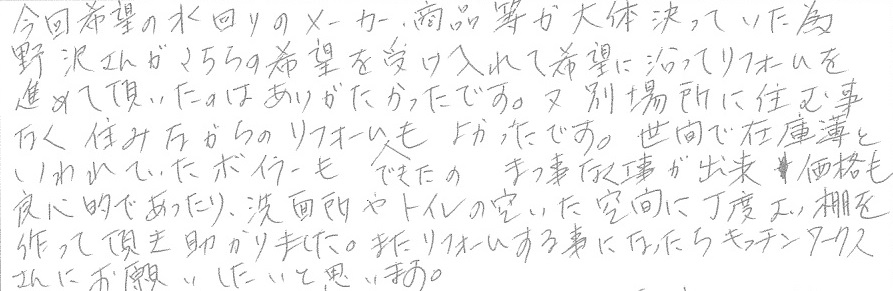 今回希望の水回りのメーカー、商品等が大体決っていた為
野沢さんがこちらの希望を受け入れて希望に沿ってリフォームを
進めて頂いたのはありがたかったです。又別場所に住む事
なく住みながらのリフォームもよかったです。世間で在庫薄と
いわれていたボイラーも まつ事なく工事が出来 価格も
良心的であったり、洗面所やトイレの空いた空間に丁度よい棚を
作って頂き助かりました。またリフォームする事になったらキッチンワークス
さんにお願いしたいと思います。